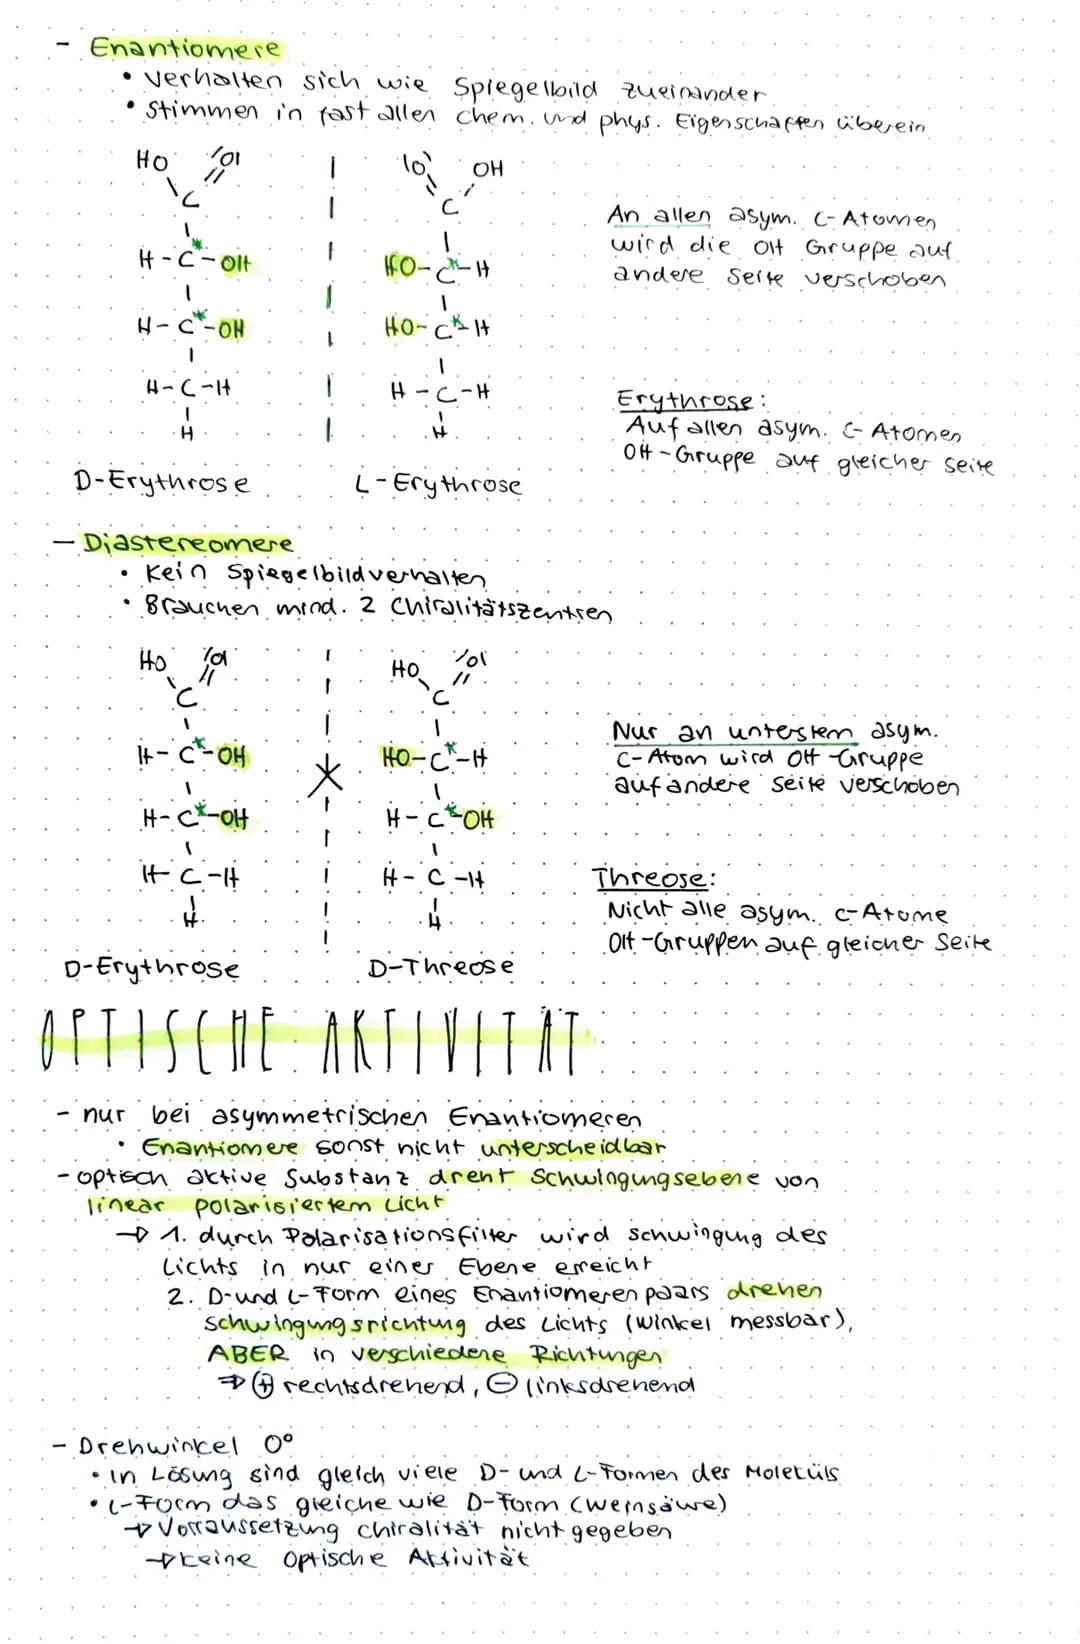 - Enantiomere
• verhalten sich wie Spiegelbild zueinander
• Stimmen in fast allen chem. und phys. Eigenschaften überein
HO \O|
|O\ OH
C
C
H-C*-OH
HO-C*-H
H-C*-OH
HO-C*-H
H-C-H
H-C-H
H
H
D-Erythrose
L-Erythrose
An allen asym. C-Atomen
wird die OH Gruppe auf
andere Seite verschoben
Erythrose:
Auf allen asym. C-Atomen
OH-Gruppe auf gleicher Seite
- Diastereomere
• Kein Spiegelbildverhalten
• Brauchen mind. 2 Chiralitätszentren
HO \O|
HO \O|
C
C
H-C*-OH
HO-C*-H
H-C*-OH
H-C*-OH
H-C-H
H-C-H
H
H
D-Erythrose
D-Threose
Nur an unterstem asym.
C-Atom wird OH-Gruppe
auf andere Seite verschoben
Threose:
Nicht alle asym. C-Atome
OH-Gruppen auf gleicher Seite
OPTISCHE AKTIVITÄT
- nur bei asymmetrischen Enantiomeren
• Enantiomere sonst nicht unterscheidbar
- optisch aktive Substanz dreht Schwingungsebene von
linear polarisiertem Licht
→ 1. durch Polarisationsfilter wird schwingung des
Lichts in nur einer Ebene erreicht
2. D-und L-Form eines Enantiomerenpaars drehen
schwingungsrichtung des Lichts (winkel messbar),
ABER in verschiedene Richtungen
⇒ ⊕ rechtsdrehend, ⊖ linksdrehend
- Drehwinkel 0°
• In Lösung sind gleich viele D- und L-Formen des Moleküls
• L-Form das gleiche wie D-Form (Weinsäure)
→ Vorraussetzung chiralität nicht gegeben
→ keine Optische Aktivität